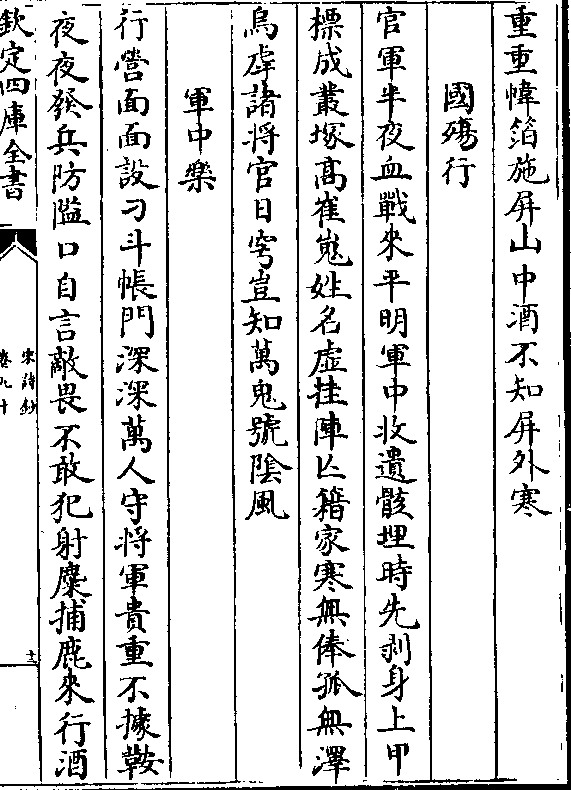 重重幃箔施屏山中酒不知屏外寒
國殤行
官軍半夜血戰來平明軍中收遺骸埋時先剥身上甲
摽成叢塚髙崔嵬姓名虛挂陣亡籍家寒無俸孤無澤
烏虖諸将官日穹豈知萬鬼號陰風
軍中樂
行營面面設刁斗帳門深深萬人守将軍貴重不據鞍
夜夜發兵防隘口自言敵畏不敢犯射麋捕鹿來行酒
欽定四庫全書
宋詩鈔
卷九十
十二